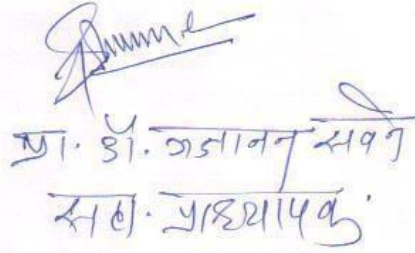 प्रा. डॉ. गजानन सवने
सहा. प्राध्यापक.